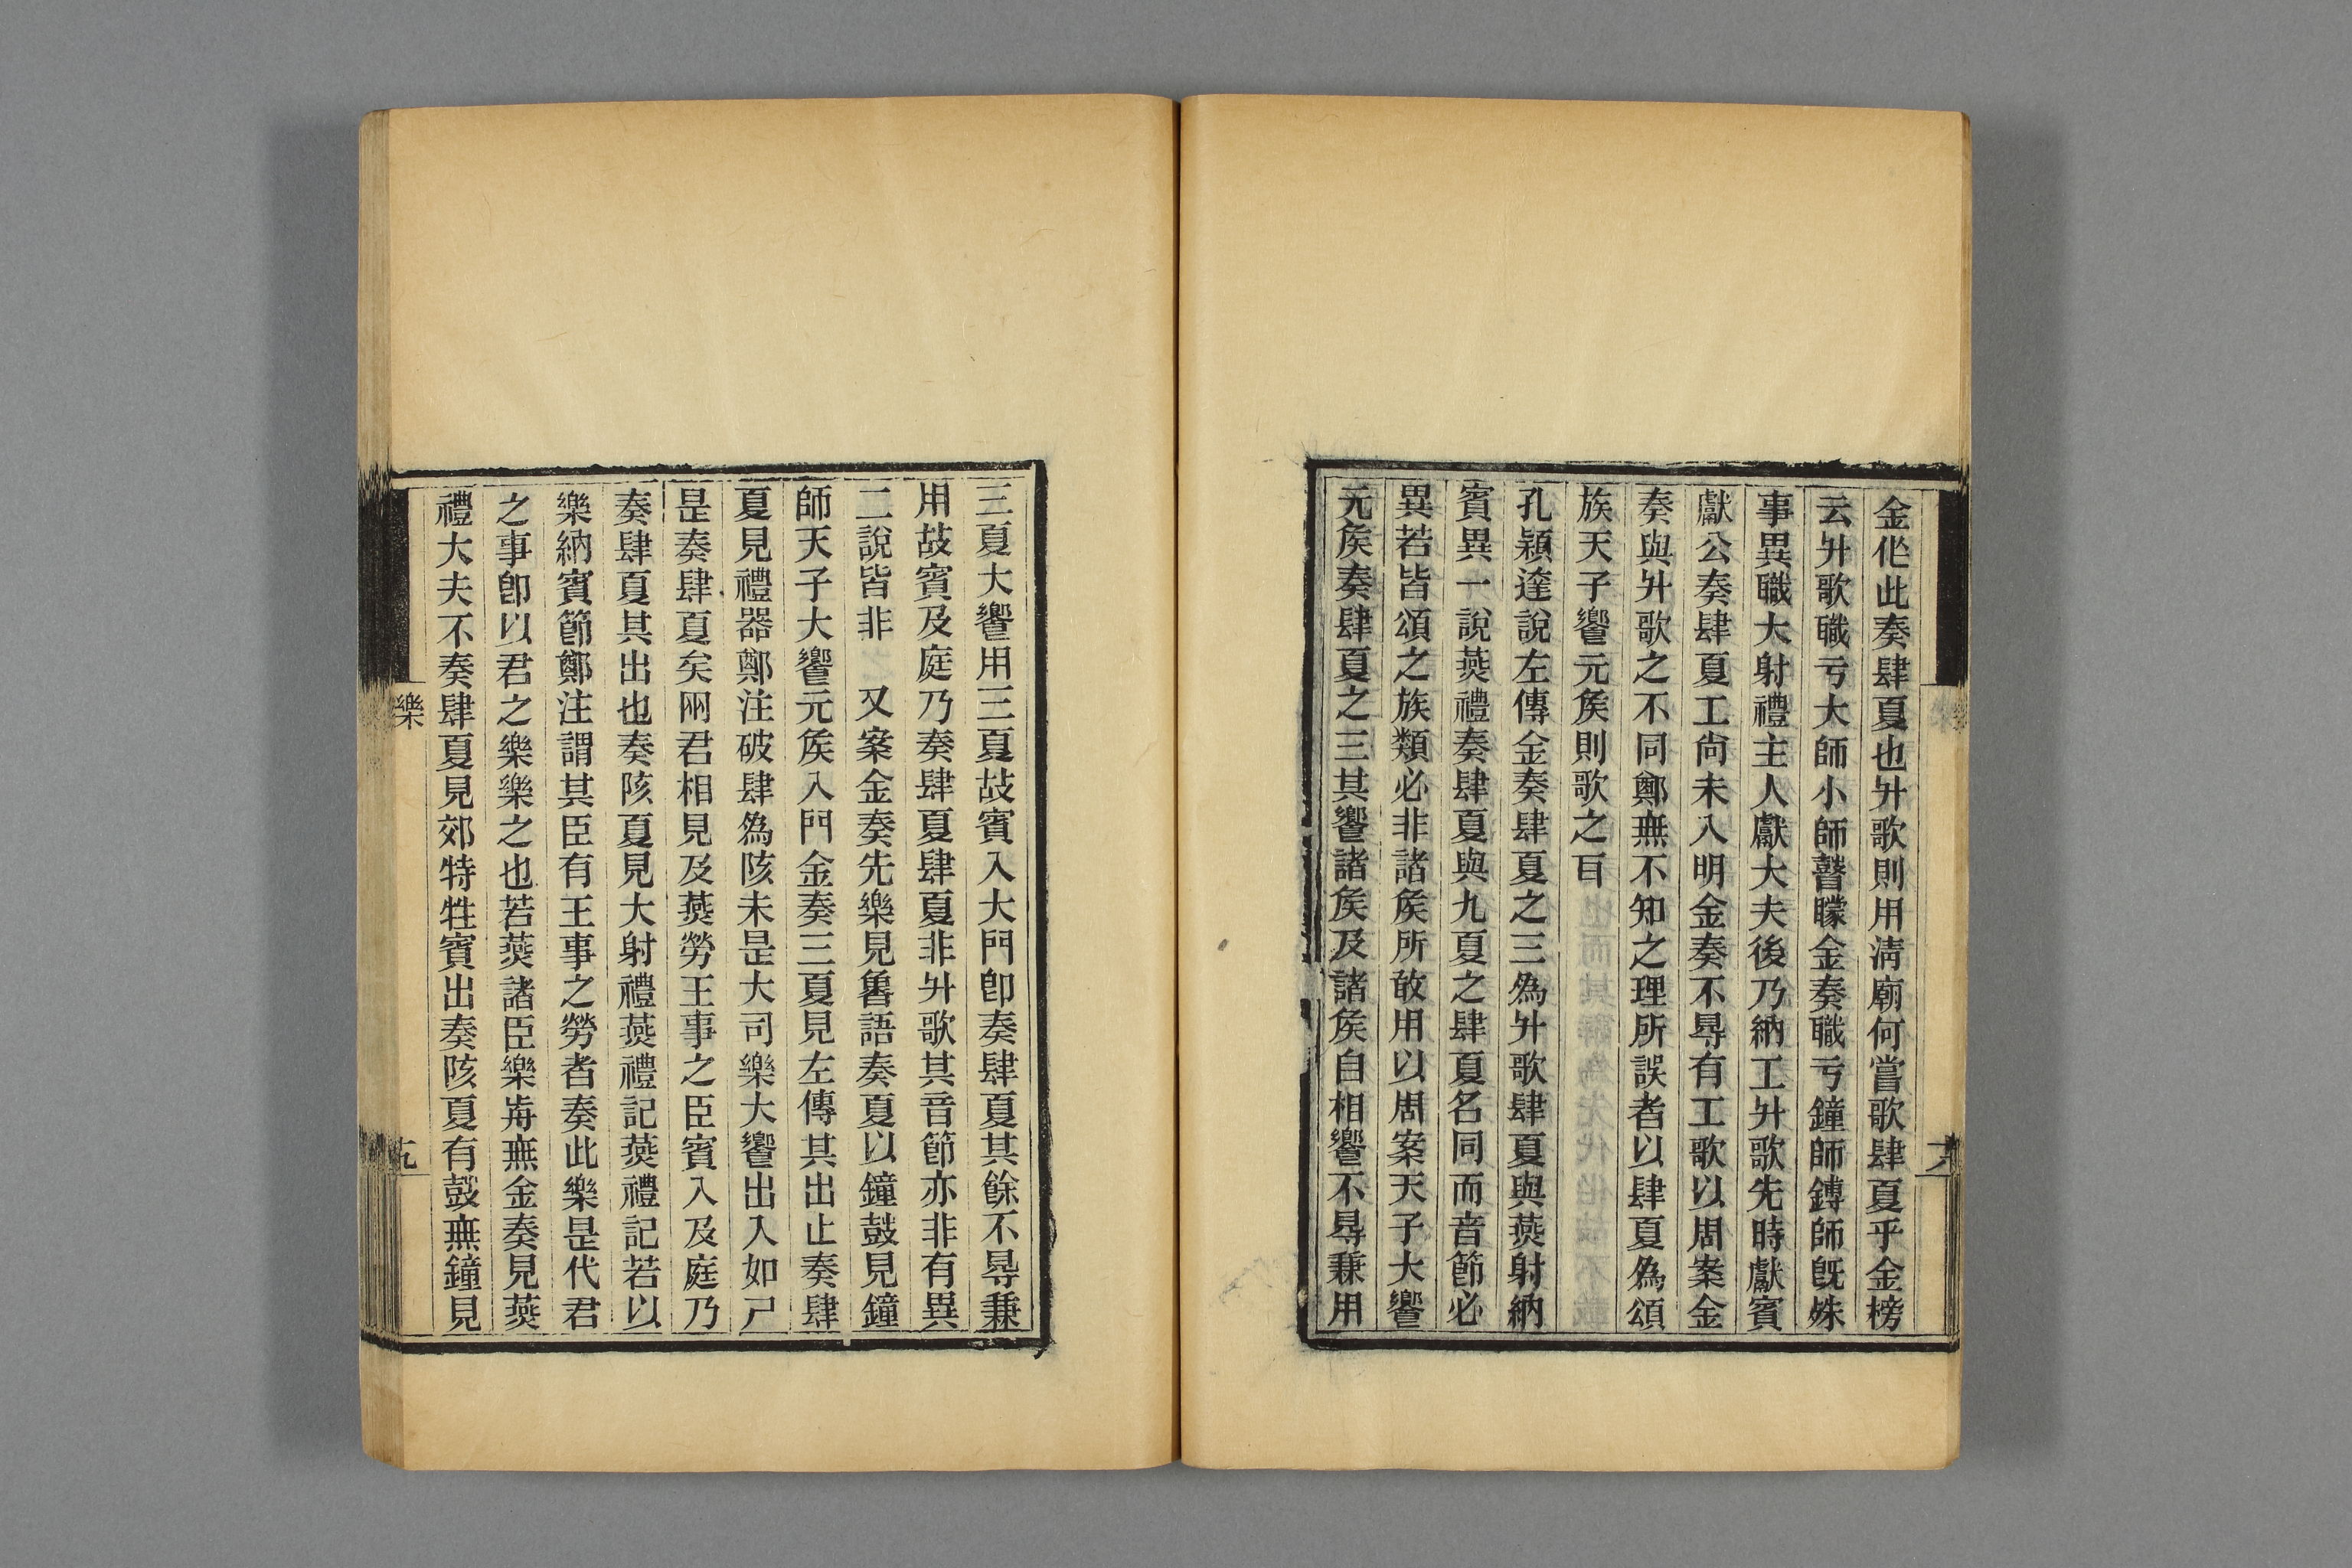 金作此奏肆夏也升歌則用淸廟何嘗歌肆夏乎金榜
云升歌職亏大師小師瞽矇金奏職亏鐘師鎛師旣殊
事異職大射禮主人獻大夫後乃納工升歌先時獻賓
獻公奏肆夏工尙未入明金奏不㝵有工歌以周案金
奏與升歌之不同鄭無不知之理所誤者以肆夏為頌
族天子響元矦則歌之𦣻
孔穎達說左傳金奏肆夏之三為升歌肆夏與燕射納
賓異一說燕禮奏肆夏與九夏之肆夏名同而音節必
異若皆頌之族類必非諸矦所敢用以周案天子大饗
元矦奏肆夏之三其饗諸矦及諸矦自相饗不㝵兼用
三夏大饗用三夏故賓入大門卽奏肆夏其餘不㝵兼
用故賓及庭乃奏肆夏肆夏非升歌其音節亦非有異
二說皆非 又案金奏先樂見魯語奏夏以鐘鼓見鐘
師天子大饗元矦入門金奏三夏見左傳其出止奏肆
夏見禮器鄭注破肆為陔未是大司樂大饗出入如尸
是奏肆夏矣网君相見及燕勞王事之臣賓入及庭乃
奏肆夏其出也奏陔夏見大射禮燕禮記燕禮記若以
樂納賓節鄭注謂其臣有王事之勞者奏此樂是代君
之事卽以君之樂樂之也若燕諸臣樂歬無金奏見燕
禮大夫不奏肆夏見郊特牲賓出奏陔夏有鼓無鐘見
樂